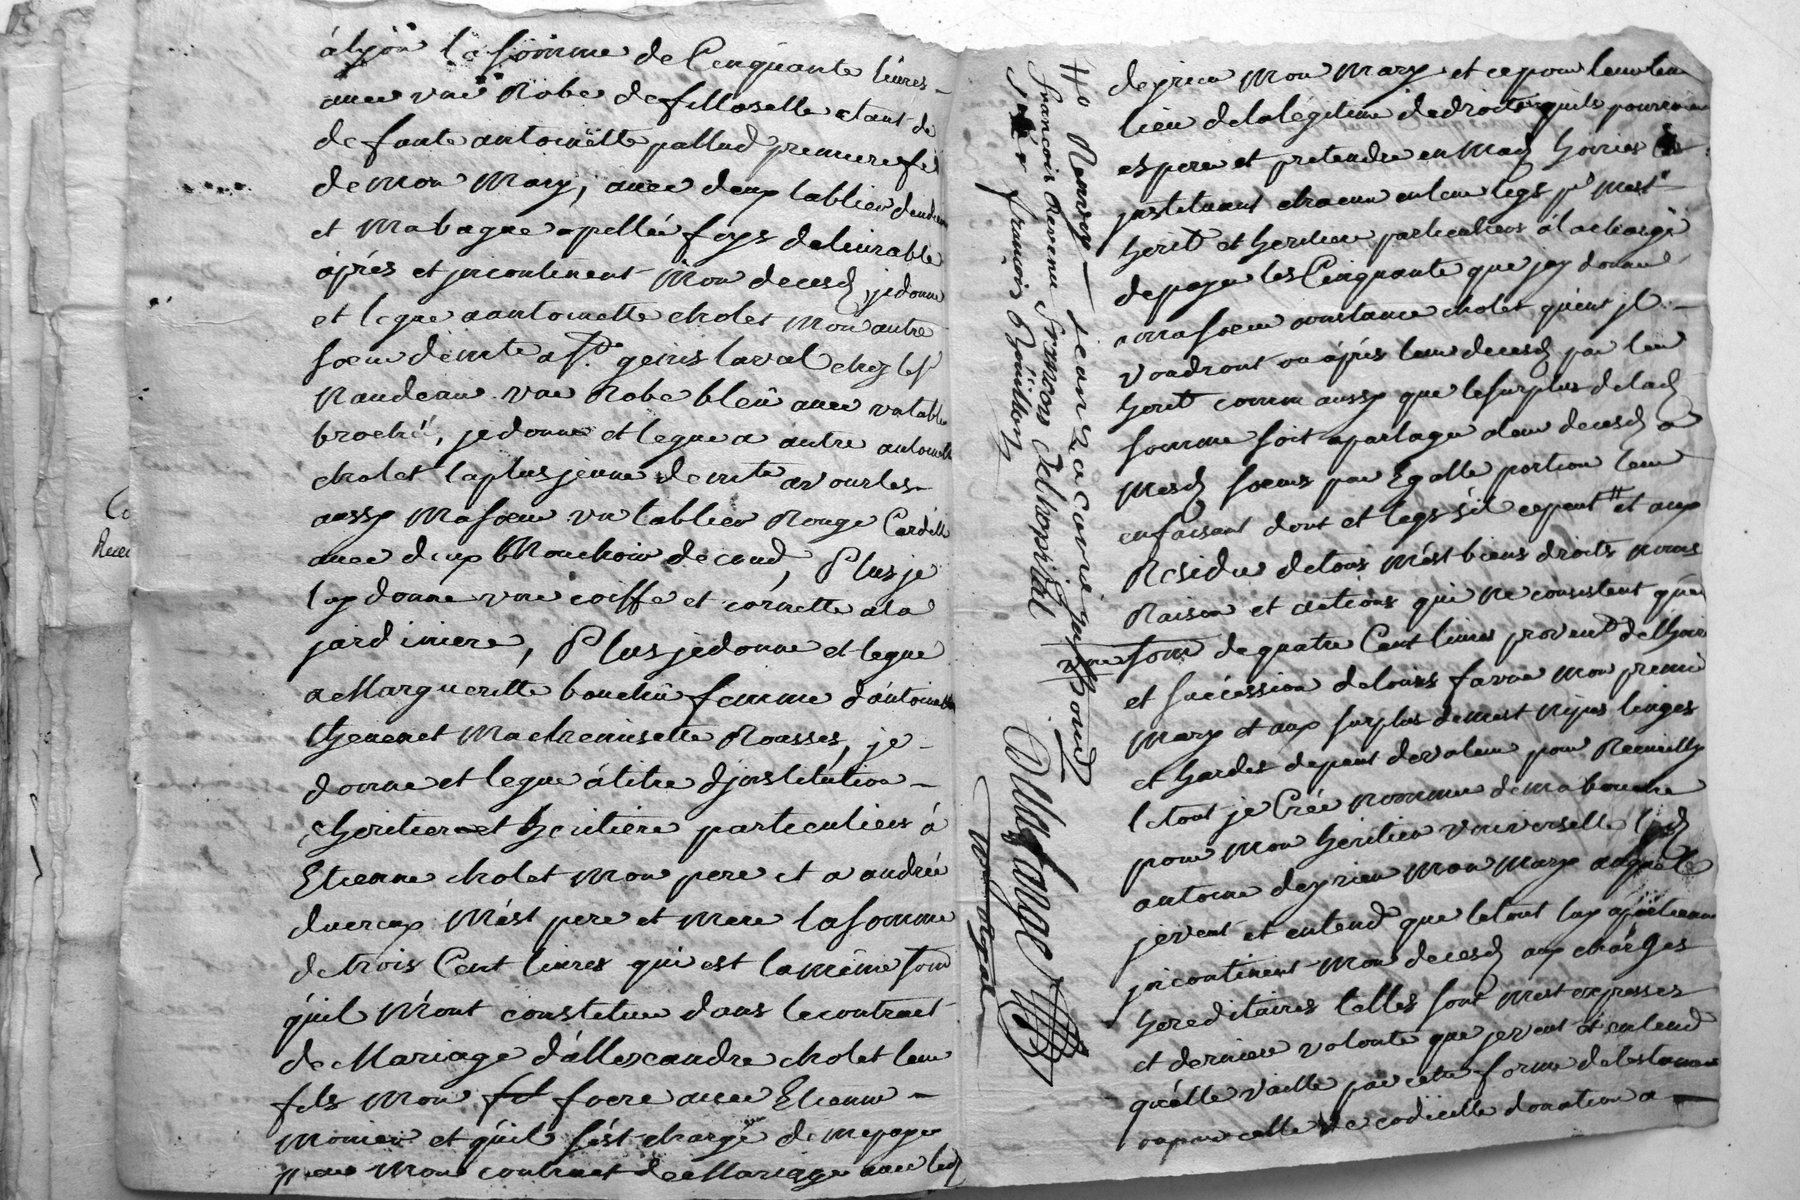 à lyon la somme de Cinquante livres
avec une Robe de filloselle etant de
de faute antoinette pallud premiere fe
de mon Mary, avec deux tablier d'
et ma bague apellée foys delivrable
après et incontinent mon deces, je donne
et legue a antoinette cholet mon autre
soeur demte a St genis laval chez le Sr
Naudeau une Robe bleu avec un tablie
broché, je donne et legue a autre antoinette
cholet la plus jeune demte a vourles
aussy ma soeur un tablier Rouge
avec deux Mouchoir de coud, Plus je
luy donne une coiffe et cornette a la
jardiniere, Plus je donne et legue
a Marguerite bouchu femme d'antoine
thevenet ma chemisette Rousse, je
donne et legue à titre d'institution
heritier et heritiere particuliers à
Etienne cholet mon pere et a andrée
mest pere et mere la somme
de trois Cent livres qui est la même som
qu'il m'ont constitue dans le contract
de Mariage d'allexandre cholet leur
fils mon frere avec Etienne
monier et qu'il s'est chargé de me payer
par mon contract de Mariage avec led
deyrieu mon Mary et ce pour leur ten
lieu de la légitime et droits qu'ils pourroient
espere et pretendre en ma hoiries les
instituant chacun en leur legs pr mest
herit et heritiere particuliers à la charge
de payer les Cinquante que jay donne
a ma soeur constance cholet quent il
voudront ou après leur deces par leur
herit comme aussy que le surplus de lad
somme soit apartage a leur deces a
mesd soeurs par Egalle portion leur
en faisant dont et legs s'il cepent et aux
Residu de tous mest biens droits noms
Raison et actions qui ne consistent qu'en
une som de quatre Cent livres provent de l'hoirie
et succession de louis favre mon premier
Mary et aux surplus de mest nipes linges
et hardes de peut de valeur pour Recueilly
le tout je Crée nomme de ma bouche
pour mon heritier universelle led
antoine deyrieu mon mary auquel
je veut et entend que le tout luy apartienne
incontinent mon deces aux charges
hereditaires telles sont mest expresses
et derniere volonte que je veut et entend
qu'elle vaille par cette forme de testament
ou par celle de codicelle donation a
Jean Zacarie
francois Ravenu francois delhopital
francois Bouillon
Dellafarge